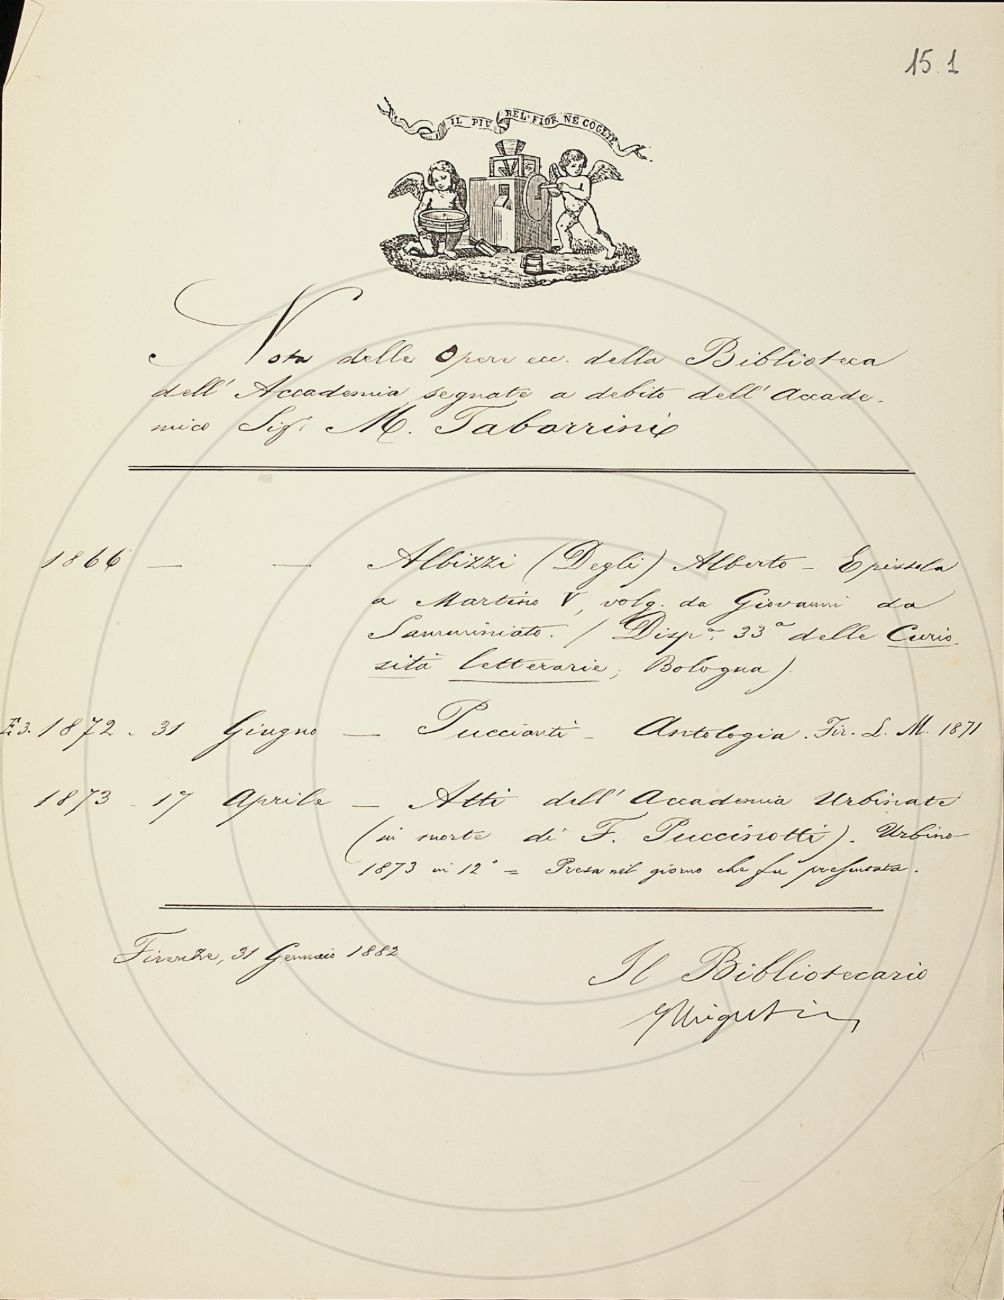 15.1
IL PIÙ BEL FIOR NE COGLIE
Nota delle Opere ecc. della Biblioteca
dell' Accademia segnate a debito dell' Accade-
mico Sigr. M. Tabarrini
1866 — — Albizzi (Degli) Alberto — Epistola
a Martino V, volg. da Giovanni da
Samminiato. (Dispa. 33a delle Curio
sità letterarie, Bologna).
1872 - 31 Giugno — Puccianti — Antologia. Fir. L. M. 1871
1873 - 17 Aprile — Atti dell' Accademia Urbinate
(in morte di F. Puccinotti). Urbino
1873 in 12° = Presa nel giorno che fu presentata.
Firenze, 31 Gennaio 1882
Il Bibliotecario